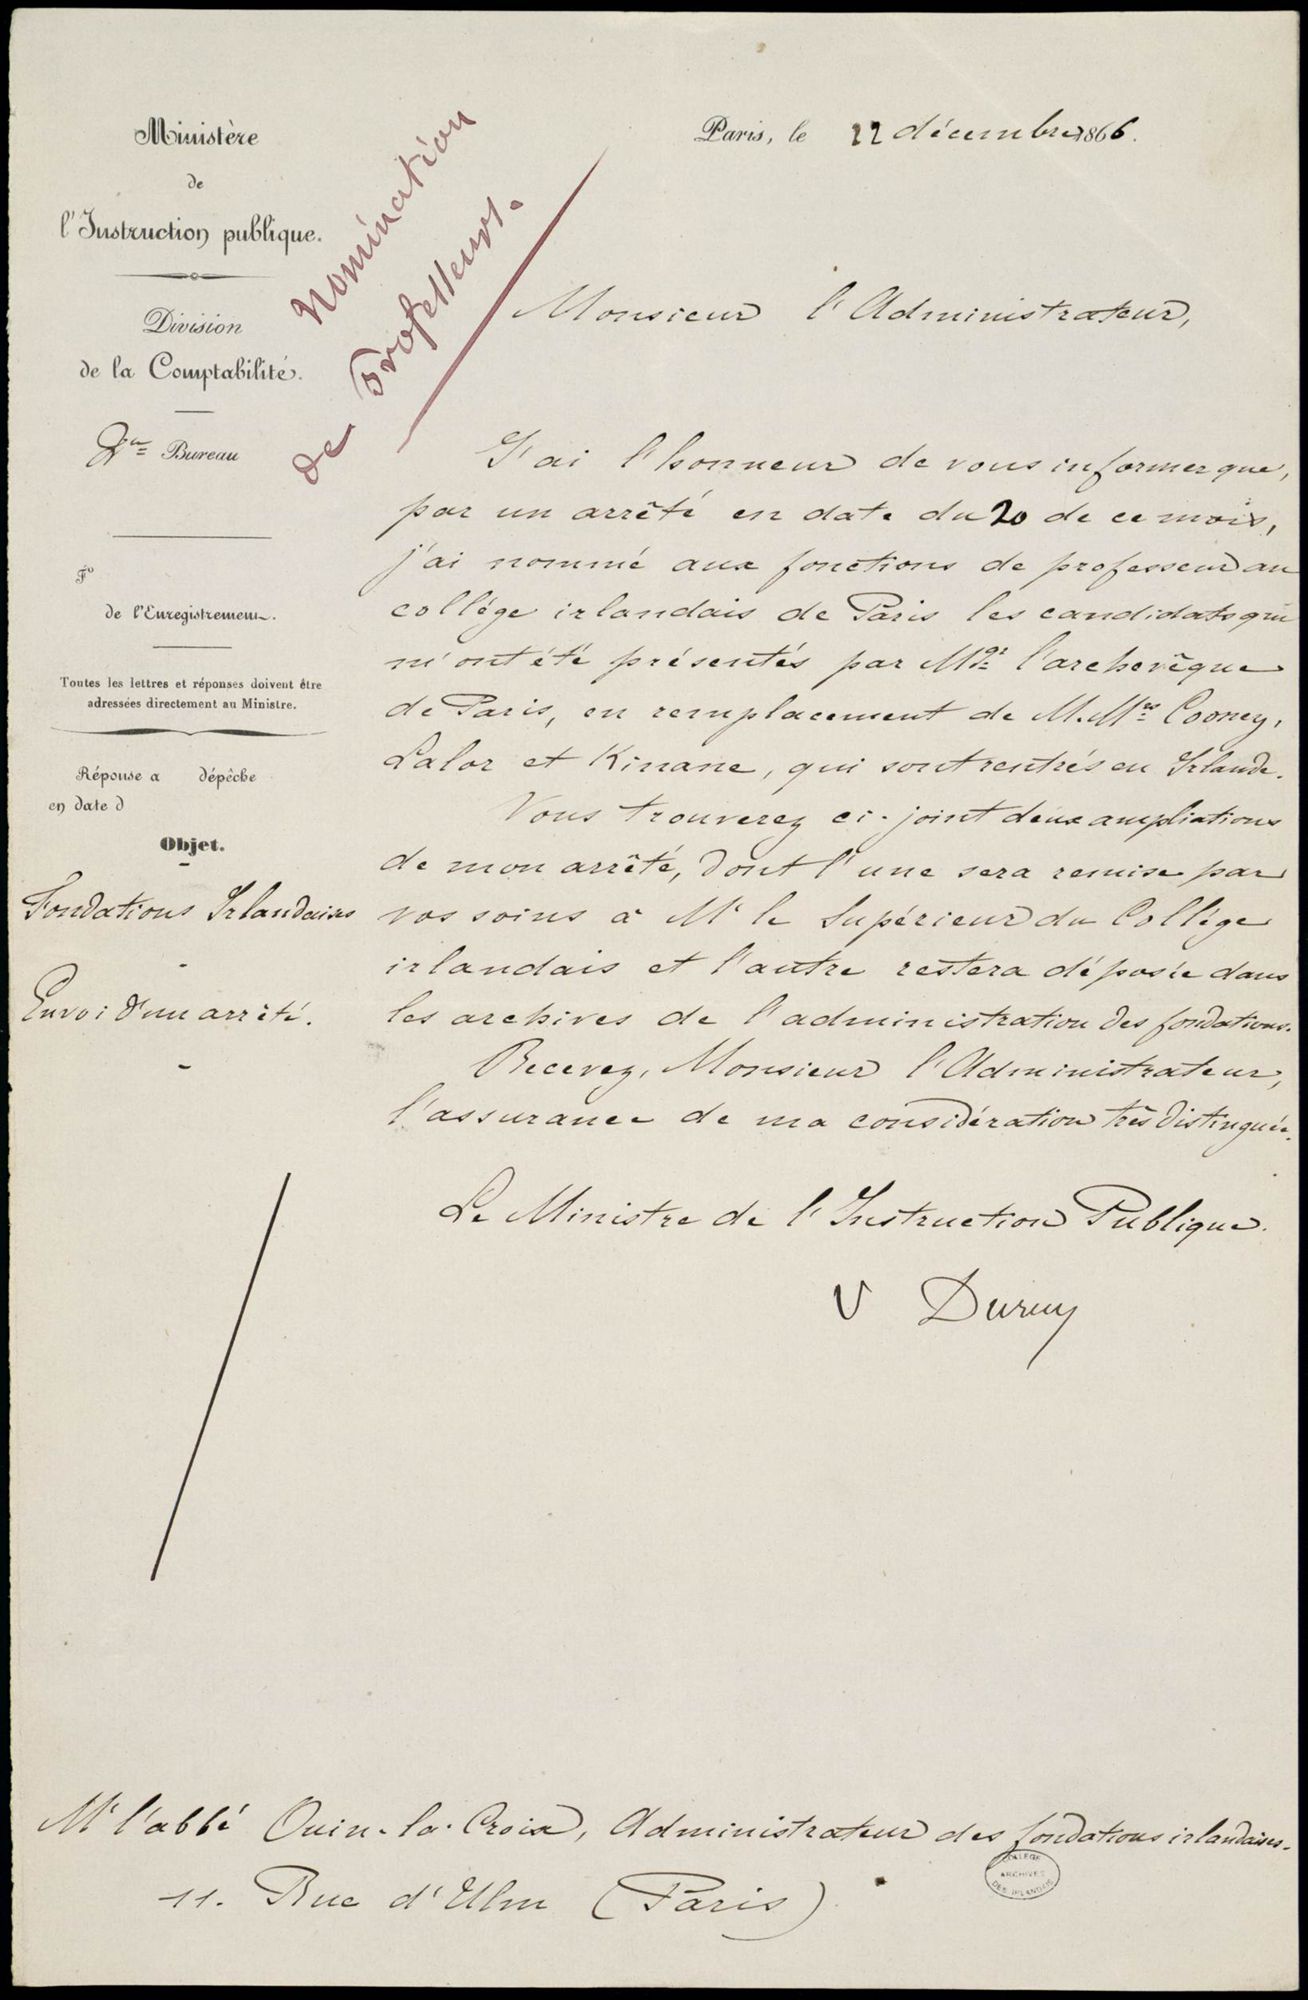 Ministère
de
l'Instruction publique.
Division
de la Comptabilité.
Bureau
F°
de l'Enregistrement.
Toutes les lettres et réponses doivent être
adressées directement au Ministre.
Réponse a dépêche
en date d
Objet.
Fondations Irlandaises
Envoi d'un arrêté.
Nomination
de Professeurs.
Paris, le 22 décembre 1866.
Monsieur l'Administrateur,
J'ai l'honneur de vous informer que,
par un arrêté en date du 20 de ce mois,
j'ai nommé aux fonctions de professeur au
collége irlandais de Paris les candidats qui
m'ont été présentés par Mgr l'archevêque
de Paris, en remplacement de M.Mrs Cooney,
Lalor et Kinane, qui sont rentrés en Irlande.
Vous trouverez ci-joint deux ampliations
de mon arrêté, dont l'une sera remise par
vos soins à Mr le Supérieur du Collége
irlandais et l'autre restera déposée dans
les archives de l'administration des fondations.
Recevez, Monsieur l'Administrateur,
l'assurance de ma considération très distinguée.
Le Ministre de l'Instruction Publique.
V Duruy
Mr l'abbé Ouin-la-Croix, Administrateur des fondations irlandaises.
11. Rue d'Ulm (Paris)
COLLEGE
ARCHIVES
DES IRLANDAIS